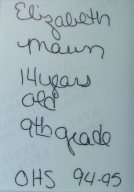 Elizabeth
Maun
14 years
old
9th grade
OHS 94-95